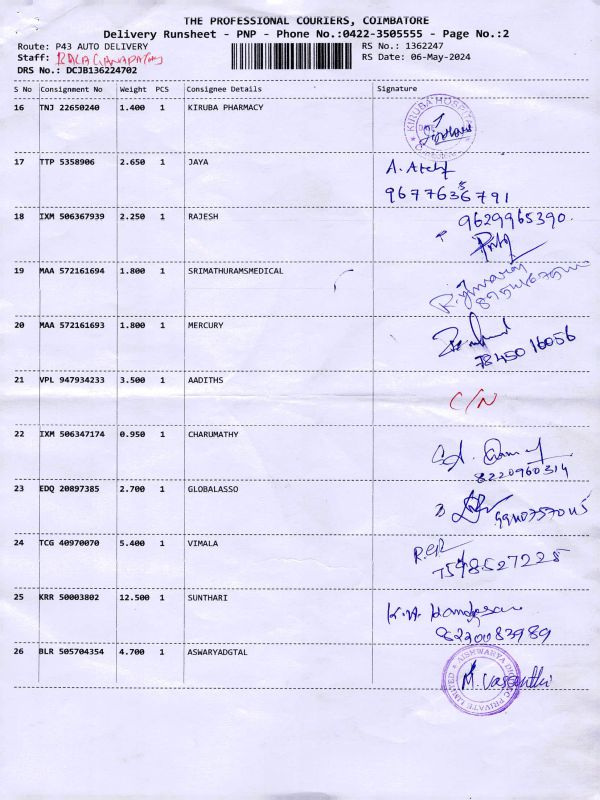 THE PROFESSIONAL COURIERS, COIMBATORE
Delivery Runsheet - PNP - Phone No.:0422-3505555 - Page No.:2
Route: P43 AUTO DELIVERY RS No.: 1362247
Staff: RS Date: 06-May-2024
DRS No.: DCJB136224702
S No Consignment No Weight PCS Consignee Details Signature
16 TNJ 22650240 1.400 1 KIRUBA PHARMACY KIRUBA HOSPITAL
DATE
17 TTP 5358906 2.650 1 JAYA
9677636791
18 IXM 506367939 2.250 1 RAJESH 9629965390.
19 MAA 572161694 1.800 1 SRIMATHURAMSMEDICAL
20 MAA 572161693 1.800 1 MERCURY
7845016056
21 VPL 947934233 3.500 1 AADITHS C/N
22 IXM 506347174 0.950 1 CHARUMATHY
8220960314
23 EDQ 20897385 2.700 1 GLOBALASSO
24 TCG 40970070 5.400 1 VIMALA
7598527225
25 KRR 50003802 12.500 1 SUNTHARI
26 BLR 505704354 4.700 1 ASWARYADGTAL M. Vasanthi